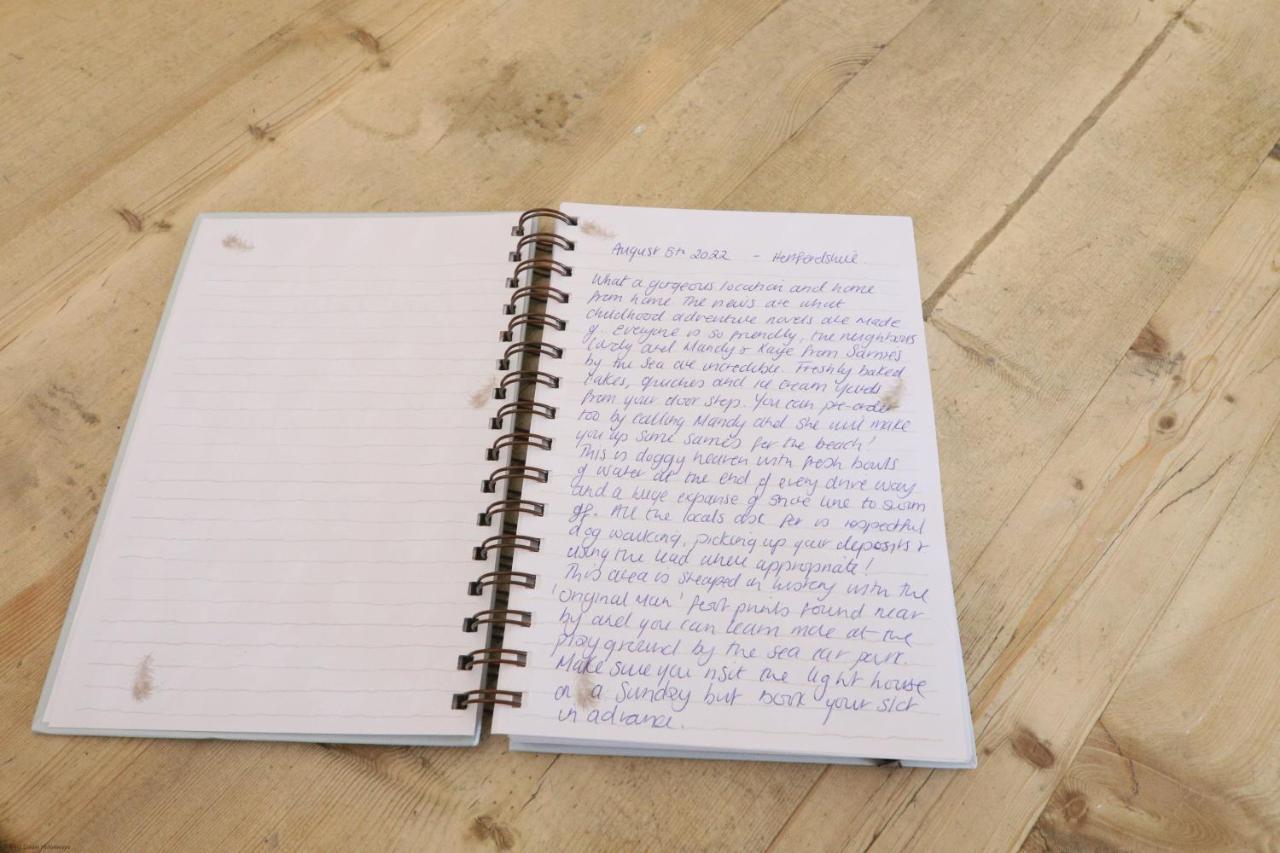 August 5th 2022 - Hertfordshire.
What a gorgeous location and home
from home. The views are what
childhood adventure novels are made
of. Everyone is so friendly, the neighbours
and Mandy & Kaye from Sarnies
by the Sea are incredible. Freshly baked
cakes, quiches and ice cream yards
from your door step. You can pre-order
too by calling Mandy and she will make
you up some sarnies for the beach!
This is doggy heaven with fresh bowls
of water at the end of every drive way
and a huge expanse of shore line to swim
off. All the locals ask for is respectful
dog walking, picking up your deposits &
using the lead where appropriate!
This area is steaped in history with the
'original Man' foot prints found near
by and you can learn more at the
playground by the sea car park.
Make sure you visit the light house
on a Sunday but book your slot
in advance.